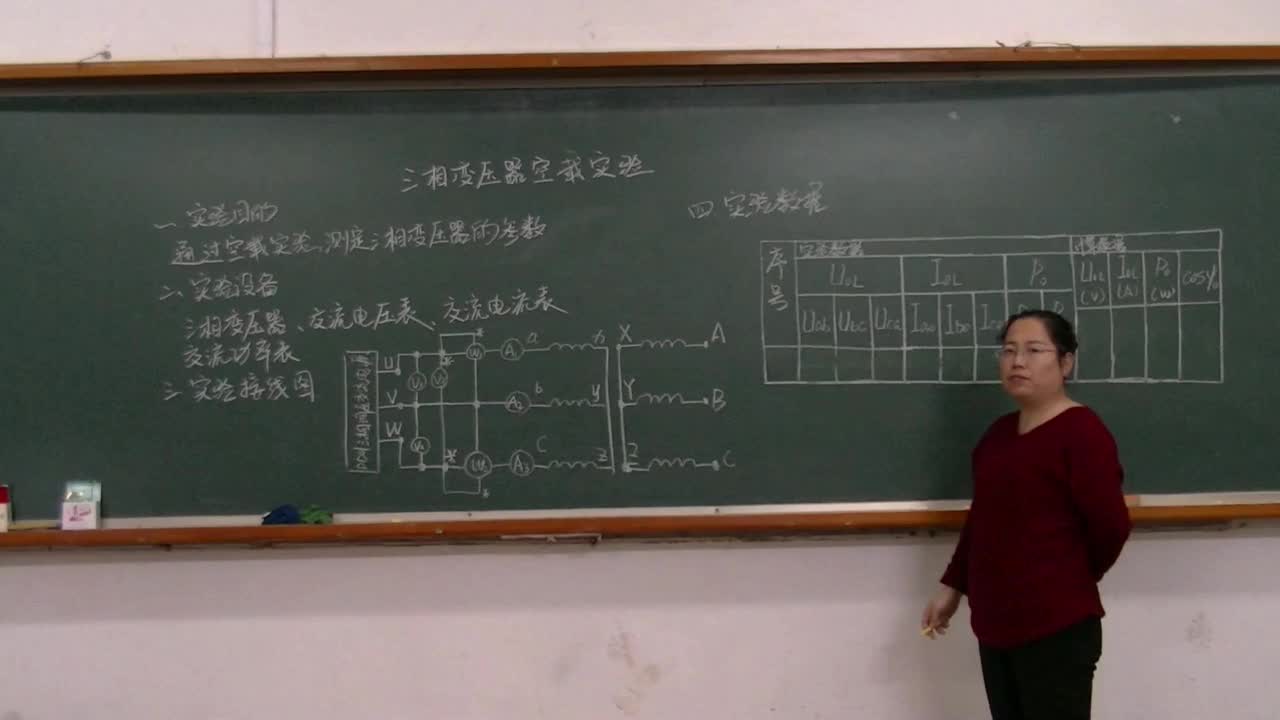 三相变压器空载实验
一、实验目的
通过空载实验,测定三相变压器的参数
二、实验设备
三相变压器、交流电压表、交流电流表
交流功率表
三、实验接线图
U
V
W
V₁
V₂
V₃
W₁
W₂
*
*
*
*
A₁
A₂
A₃
a
b
C
x
y
z
X
Y
Z
A
B
C
四 实验数据
序号
实验数据
计算数据
U0L
I0L
P0
U0L (V)
I0L (A)
P0 (W)
cosφ0
Uab
Ubc
Uca
Ia0
Ib0